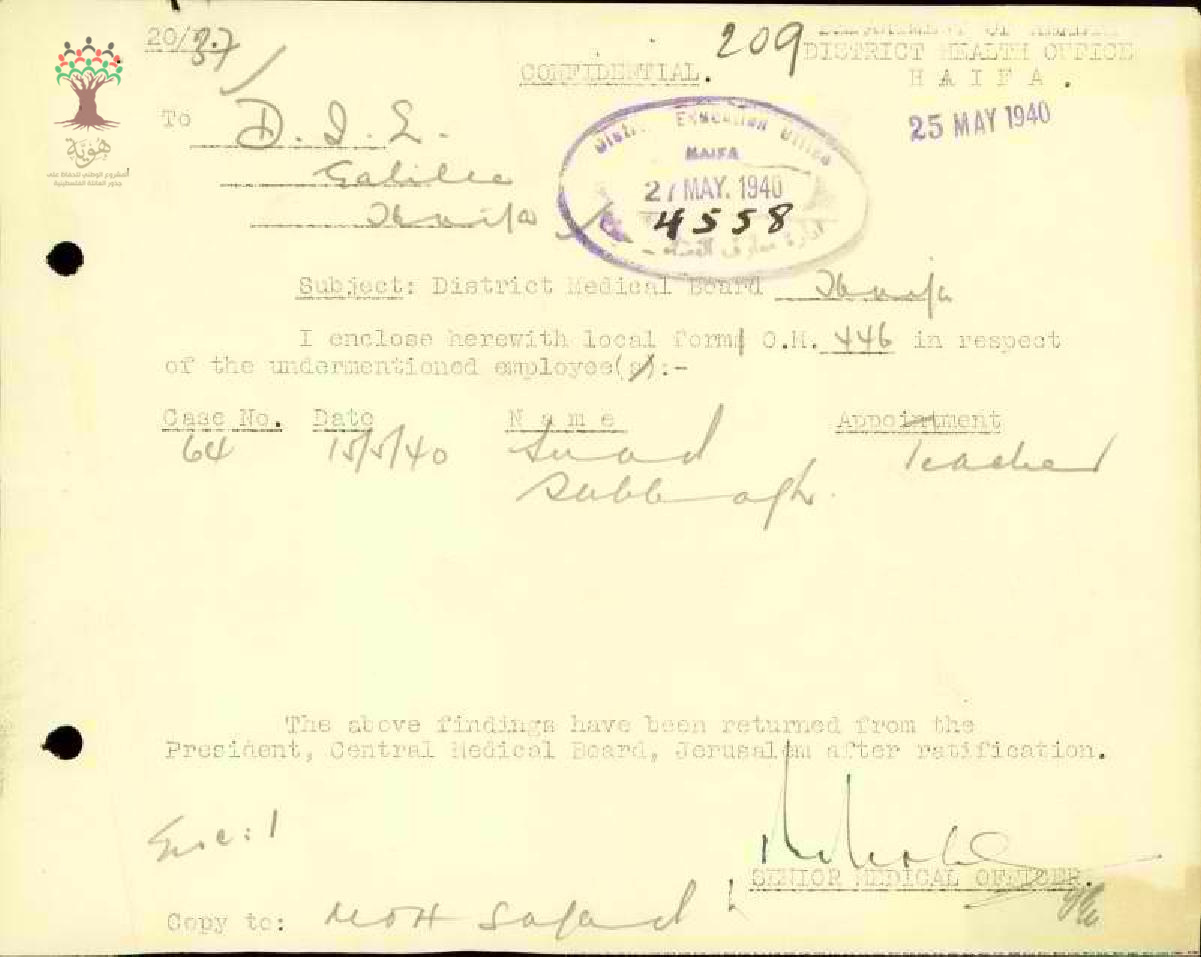 20/37/
209
DEPARTMENT OF HEALTH
DISTRICT HEALTH OFFICE
HAIFA.
CONFIDENTIAL.
25 MAY 1940
To D.I.E.
Galilee
Haifa
District Education Office
HAIFA
27 MAY. 1940
4558
هوية
المشروع الوطني للحفاظ على
جذور العائلة الفلسطينية
Subject: District Medical Board Haifa
I enclose herewith local form O.M. 446 in respect
of the undermentioned employee(s):-
Case No. Date Name Appointment
64 15/5/40 Suad Teacher
Sabbagh.
The above findings have been returned from the
President, Central Medical Board, Jerusalem after ratification.
Enc: 1
SENIOR MEDICAL OFFICER.
Copy to: MOH Safad